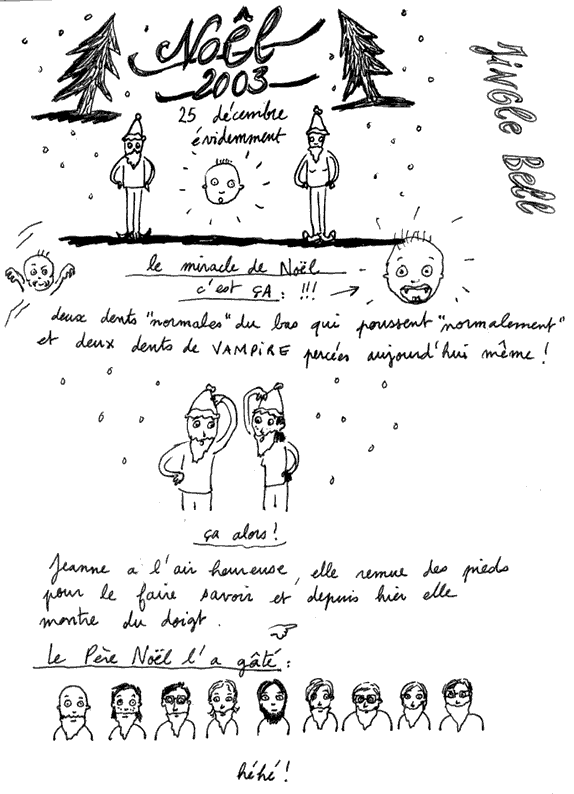 Noël
2003
25 décembre
évidemment
Jingle Bell
le miracle de Noël
c'est ÇA : !!!
deux dents "normales" du bas qui poussent "normalement"
et deux dents de VAMPiRE percées aujourd'hui même !
ça alors !
Jeanne a l'air heureuse, elle remue des pieds
pour le faire savoir et depuis hier elle
montre du doigt.
Le Père Noël l'a gâté :
héhé !